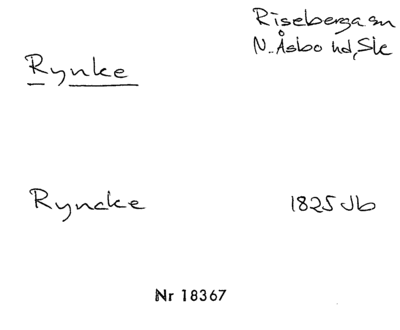 Riseberga sn
Rynke
N. Åsbo hd, Sk
Ryncke
1825 Jb
Nr 18367